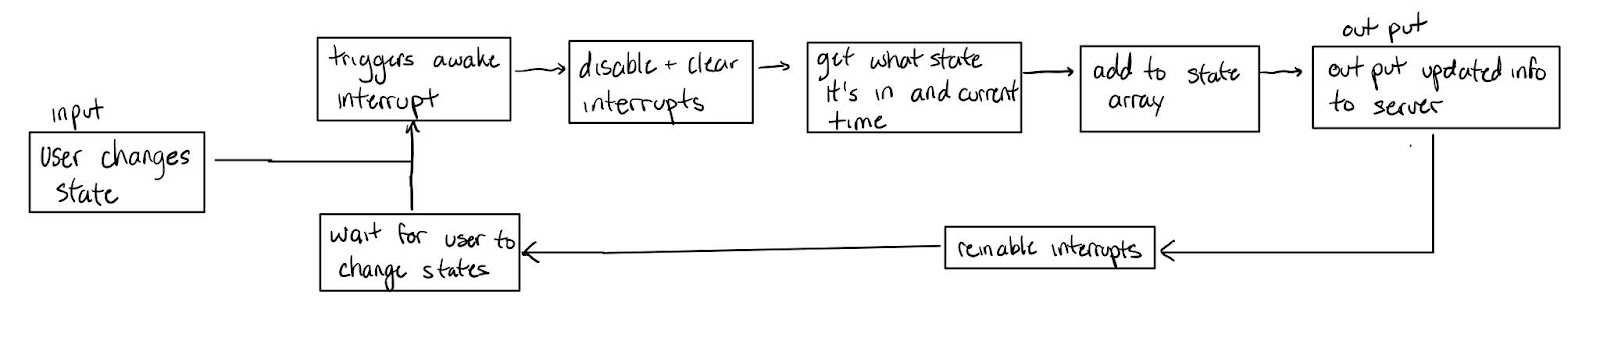 input
User changes
state
triggers awake
interrupt
disable + clear
interrupts
get what state
it's in and current
time
add to state
array
out put
out put updated info
to server
reinable interrupts
wait for user to
change states